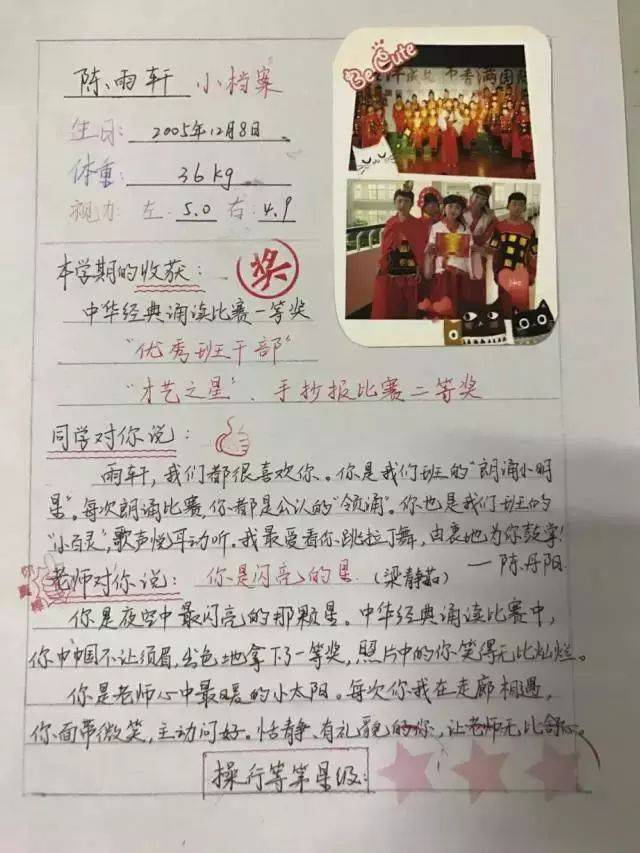 陈雨轩 小档案
生日: 2005年12月8日
体重: 36kg
视力 左:5.0 右:4.9
Be Cute
本学期的收获:
奖
中华经典诵读比赛一等奖
“优秀班干部”
“才艺之星”、手抄报比赛二等奖
同学对你说:
雨轩,我们都很喜欢你。你是我们班的“朗诵小明
星”。每次朗诵比赛,你都是公认的“领诵”。你也是我们班的
“小百灵”,歌声悦耳动听。我最爱看你跳拉丁舞,由衷地为你鼓掌!
——陈丹阳
老师对你说: 你是闪亮的星 (梁静茹)
你是夜空中最闪亮的那颗星。中华经典诵读比赛中,
你巾帼不让须眉,出色地拿下了一等奖,照片中的你笑得无比灿烂。
你是老师心中最暖的小太阳。每次你我在走廊相遇,
你面带微笑,主动问好。恬静、有礼貌的你,让老师无比舒心。
操行等第星级: